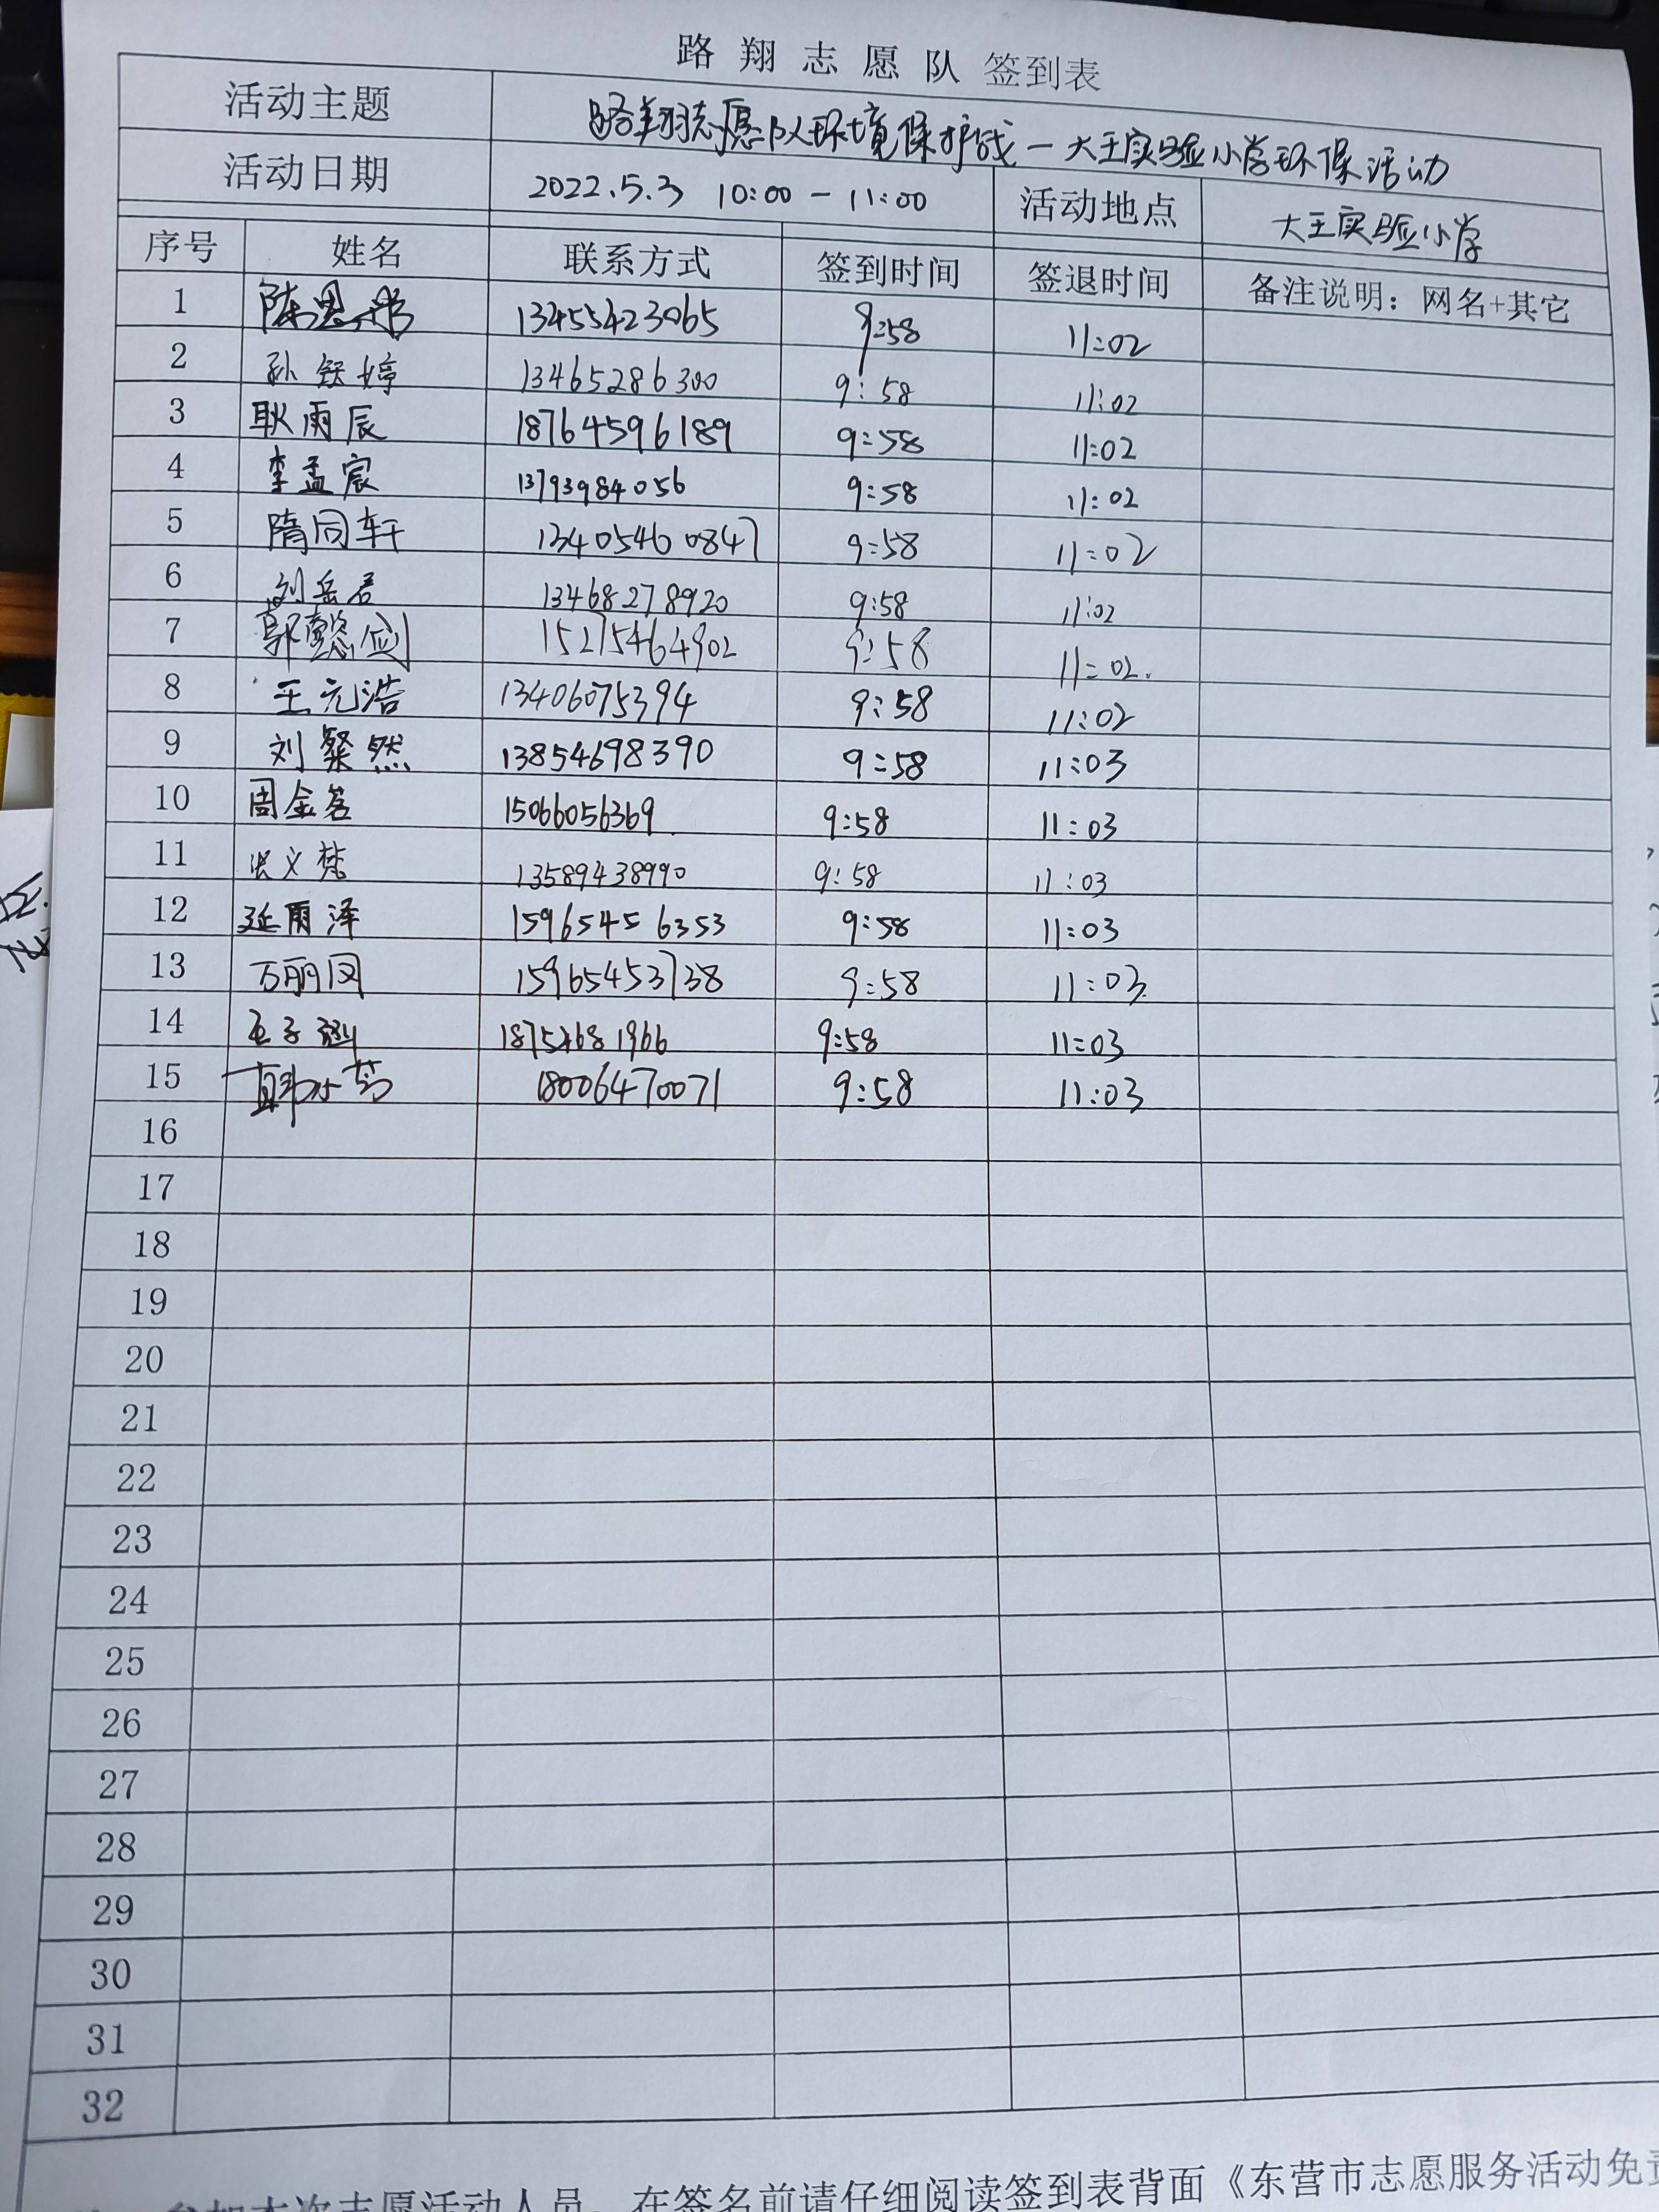 路翔志愿队签到表
活动主题 路翔志愿队环境保护战—大王实验小学环保活动
活动日期 2022.5.3 10:00-11:00 活动地点 大王实验小学
序号 姓名 联系方式 签到时间 签退时间 备注说明：网名+其它
1 陈思 13455423065 9:58 11:02
2 孙钰婷 13465286300 9:58 11:02
3 耿雨辰 18764596189 9:58 11:02
4 李孟宸 13793984056 9:58 11:02
5 隋同轩 13405460847 9:58 11:02
6 刘岳君 13468278920 9:58 11:02
7 郭懿剑 15275464902 9:58 11:02.
8 王元浩 13406075394 9:58 11:02
9 刘粲然 13854698390 9:58 11:03
10 周金茗 15066056369 9:58 11:03
11 义楚 13589438990 9:58 11:03
12 延雨泽 15965456353 9:58 11:03
13 万丽凤 15965453738 9:58 11:03
14 子涵 9:58 11:03
15 18006470071 9:58 11:03
16
17
18
19
20
21
22
23
24
25
26
27
28
29
30
31
32
参加本次志愿活动人员，在签名前请仔细阅读签到表背面《东营市志愿服务活动免责